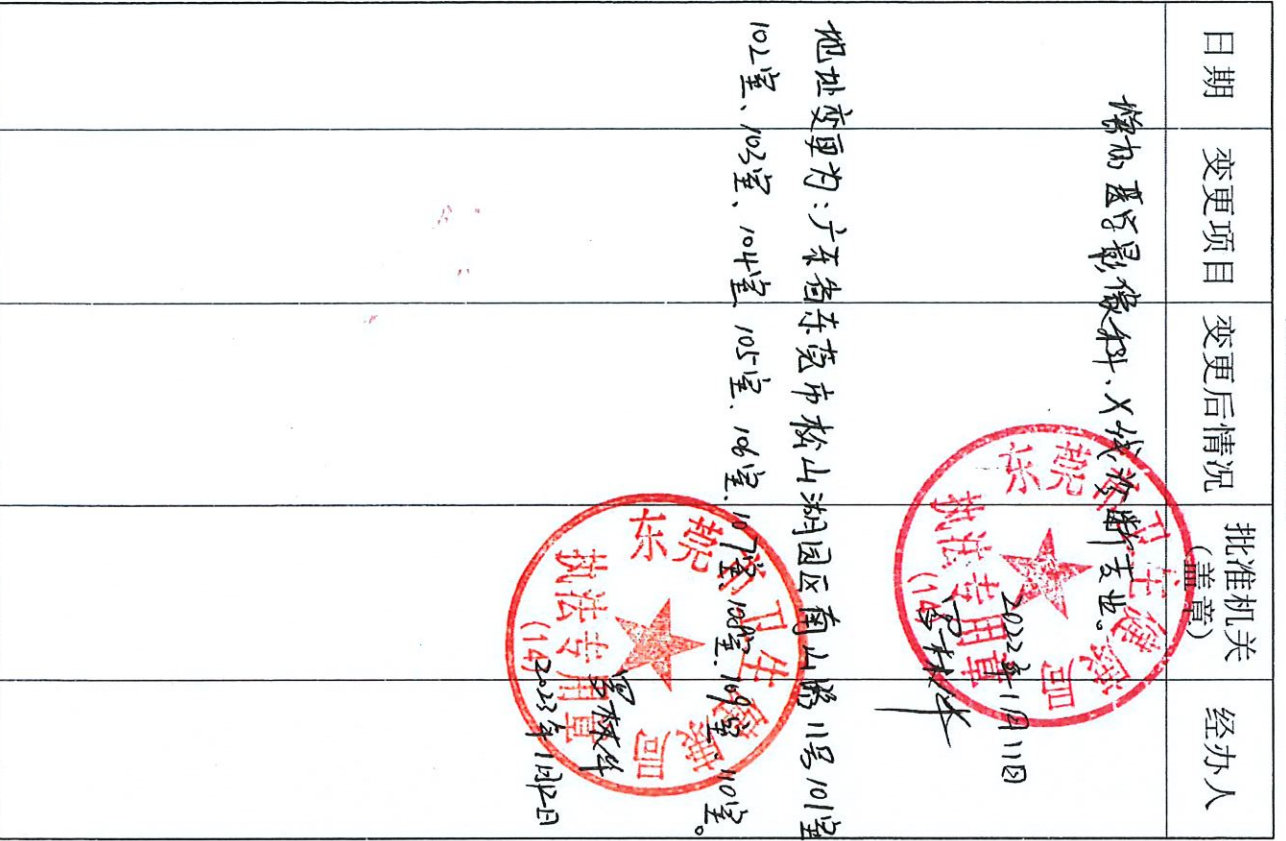 日期 变更项目 变更后情况 批准机关(盖章) 经办人
增加医学影像科、X线诊断专业。
2022年1月11日
东莞市卫生健康局
执法专用章
(14)
地址变更为:广东省东莞市松山湖园区南山路11号101室
102室、103室、104室、105室、106室、107室、108室、109室、110室。
东莞市卫生健康局
执法专用章
(14)
2023年1月12日